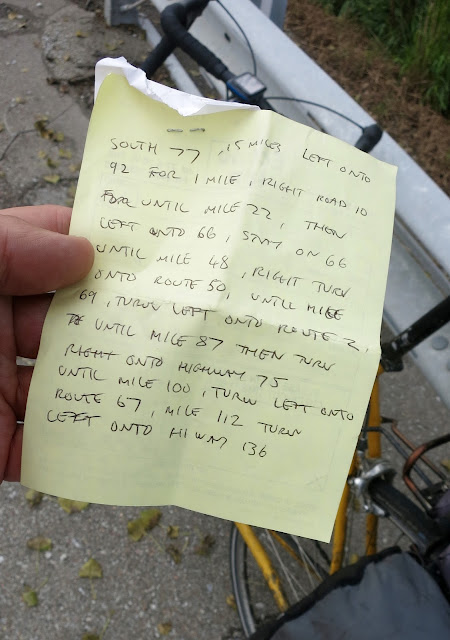 SOUTH 77 , 15 MILES LEFT ONTO
92 FOR 1 MILE, RIGHT ROAD 10
FOR UNTIL MILE 22, THEN
LEFT ONTO 66, STAY ON 66
UNTIL MILE 48, RIGHT TURN
ONTO ROUTE 50, UNTIL MILE
69, TURN LEFT ONTO ROUTE 2,
UNTIL MILE 87 THEN TURN
RIGHT ONTO HIGHWAY 75
UNTIL MILE 100, TURN LEFT ONTO
ROUTE 67, MILE 112 TURN
LEFT ONTO HIWAY 136